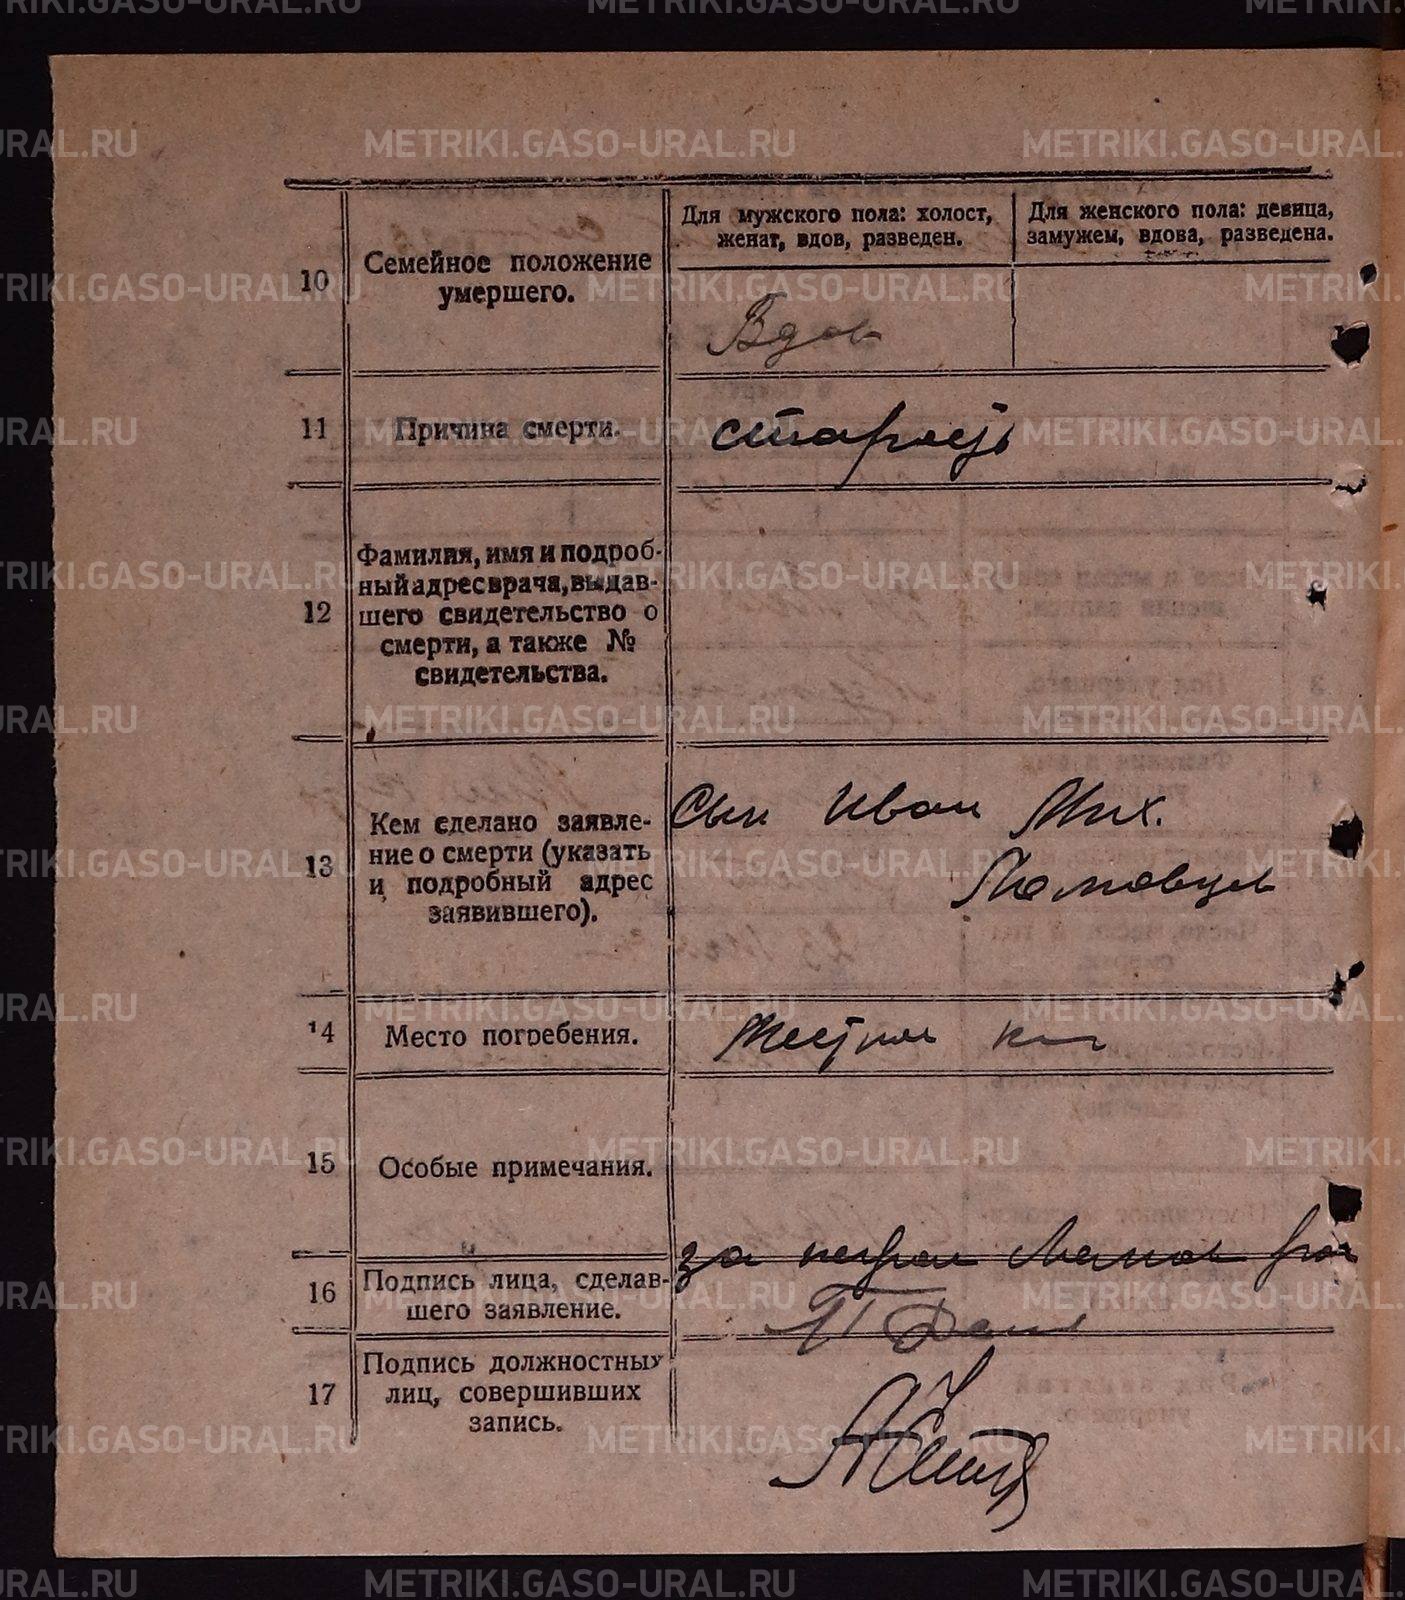 Для мужского пола: холост,
женат, вдов, разведен.
Для женского пола: девица,
замужем, вдова, разведена.
10
Семейное положение
умершего.
Вдов
11
Причина смерти.
старость
12
Фамилия, имя и подроб-
ный адрес врача, выдав-
шего свидетельство о
смерти, а также №
свидетельства.
13
Кем сделано заявле-
ние о смерти (указать
и подробный адрес
заявившего).
Сын Иван Мих.
Ломовцев
14
Место погребения.
Местное
15
Особые примечания.
16
Подпись лица, сделав-
шего заявление.
за
17
Подпись должностных
лиц, совершивших
запись.
METRIKI.GASO-URAL.RU